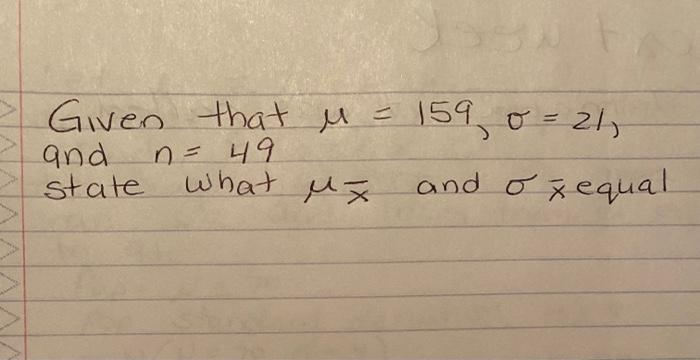 Given that μ = 159, σ = 21,
and n = 49
state what μx̄ and σx̄ equal